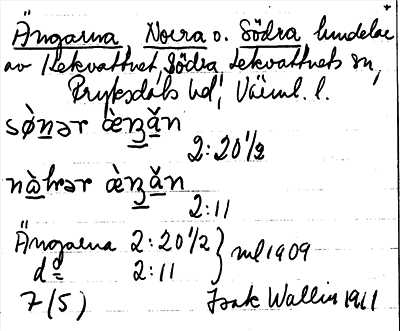 Ängarna Norra o. Södra lundelar
av Lekvattnet, Södra Lekvattnets sn,
Fryksdals hd, Värml. l.
sø̀nər æ̀nʒăn
2:20 1/2
nɔ̀hrər æ̀nʒăn
2:11
Ängarna 2:20 1/2 } ml 1909
d d 2:11
7 (5) Isak Wallin 1911